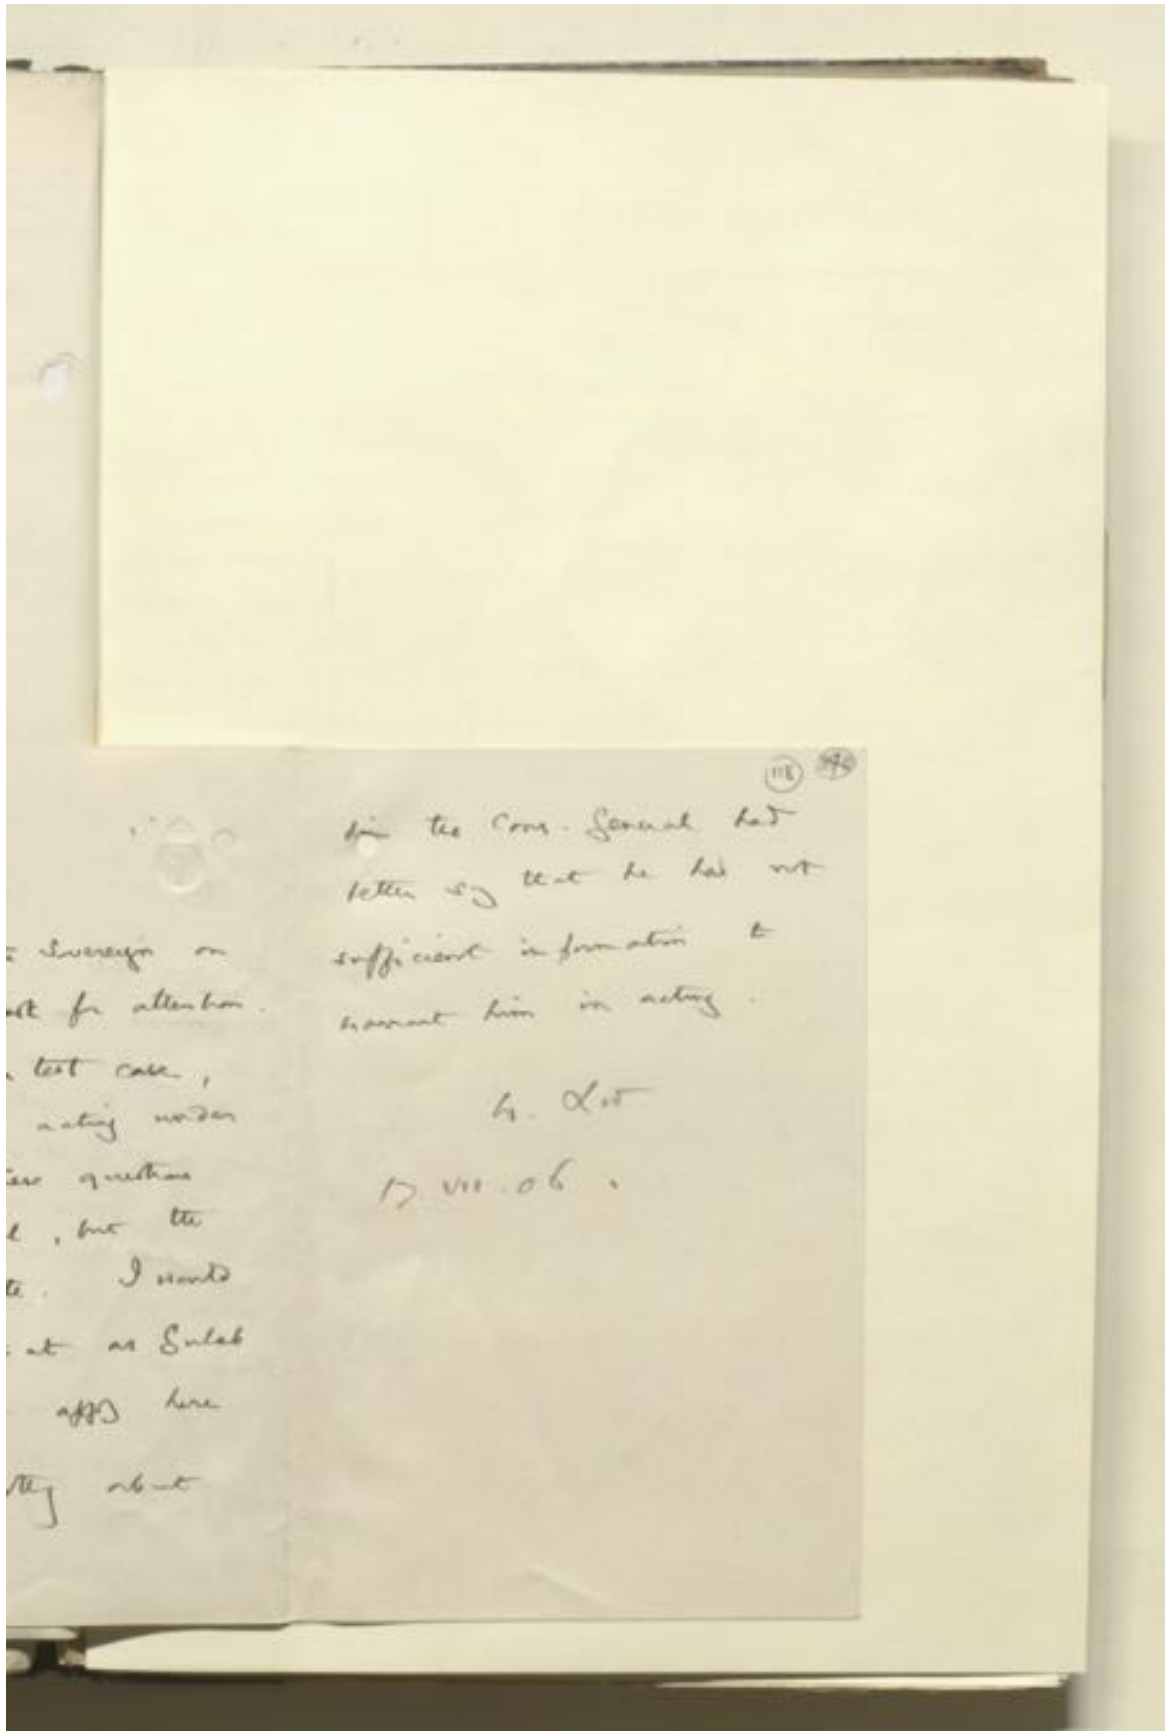 sovereign on
for attention.
test case,
acting under
questions
, but the
I would
at as Gulab
apply here
about
118
him the Cons-General had
better say that he has not
sufficient information to
warrant him in acting.
17 VII. 06.